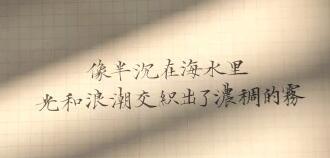 像半沉在海水里
光和浪潮交织出了濃稠的霧